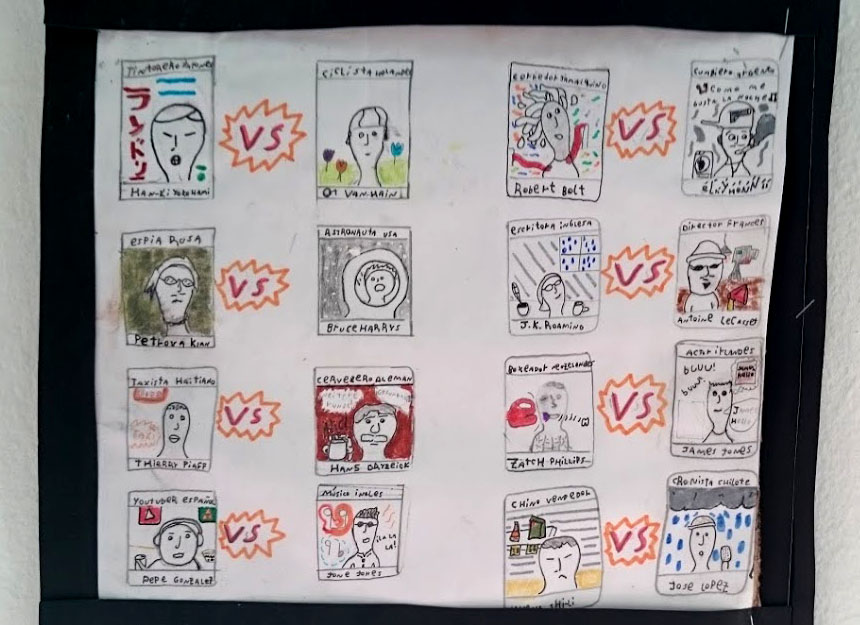 TINTORERO JAPONES
ランドリ
HAN-KI YOKOHAMI
VS
CICLISTA HOLANDES
VAN-HAIN
CORREDOR JAMAIQUINO
Robert Bolt
VS
CUMBIERO
COMO ME
GUSTA LA NOCHE
ESPIA RUSA
Petrova
VS
ASTRONAUTA USA
BRUCE HARRYS
escritora inglesa
J.K. ROAMING
VS
DIRECTOR FRANCES
ANTOINE
TAXISTA HAITIANO
TAXI
THIERRY
VS
CERVECERO ALEMAN
HANS
BOXEADOR NEOZELANDES
ZATCH PHILLIPS
VS
ACTOR IRLANDES
BUUU!
buuu!
JAMES JONES
YOUTUBER ESPAÑOL
PEPE GONZALEZ
VS
MUSICO INGLES
¡LA LA
LA!
JONE JONES
CHINO VENDEDOR
VS
CRONISTA CHILOTE
JOSE LOPEZ